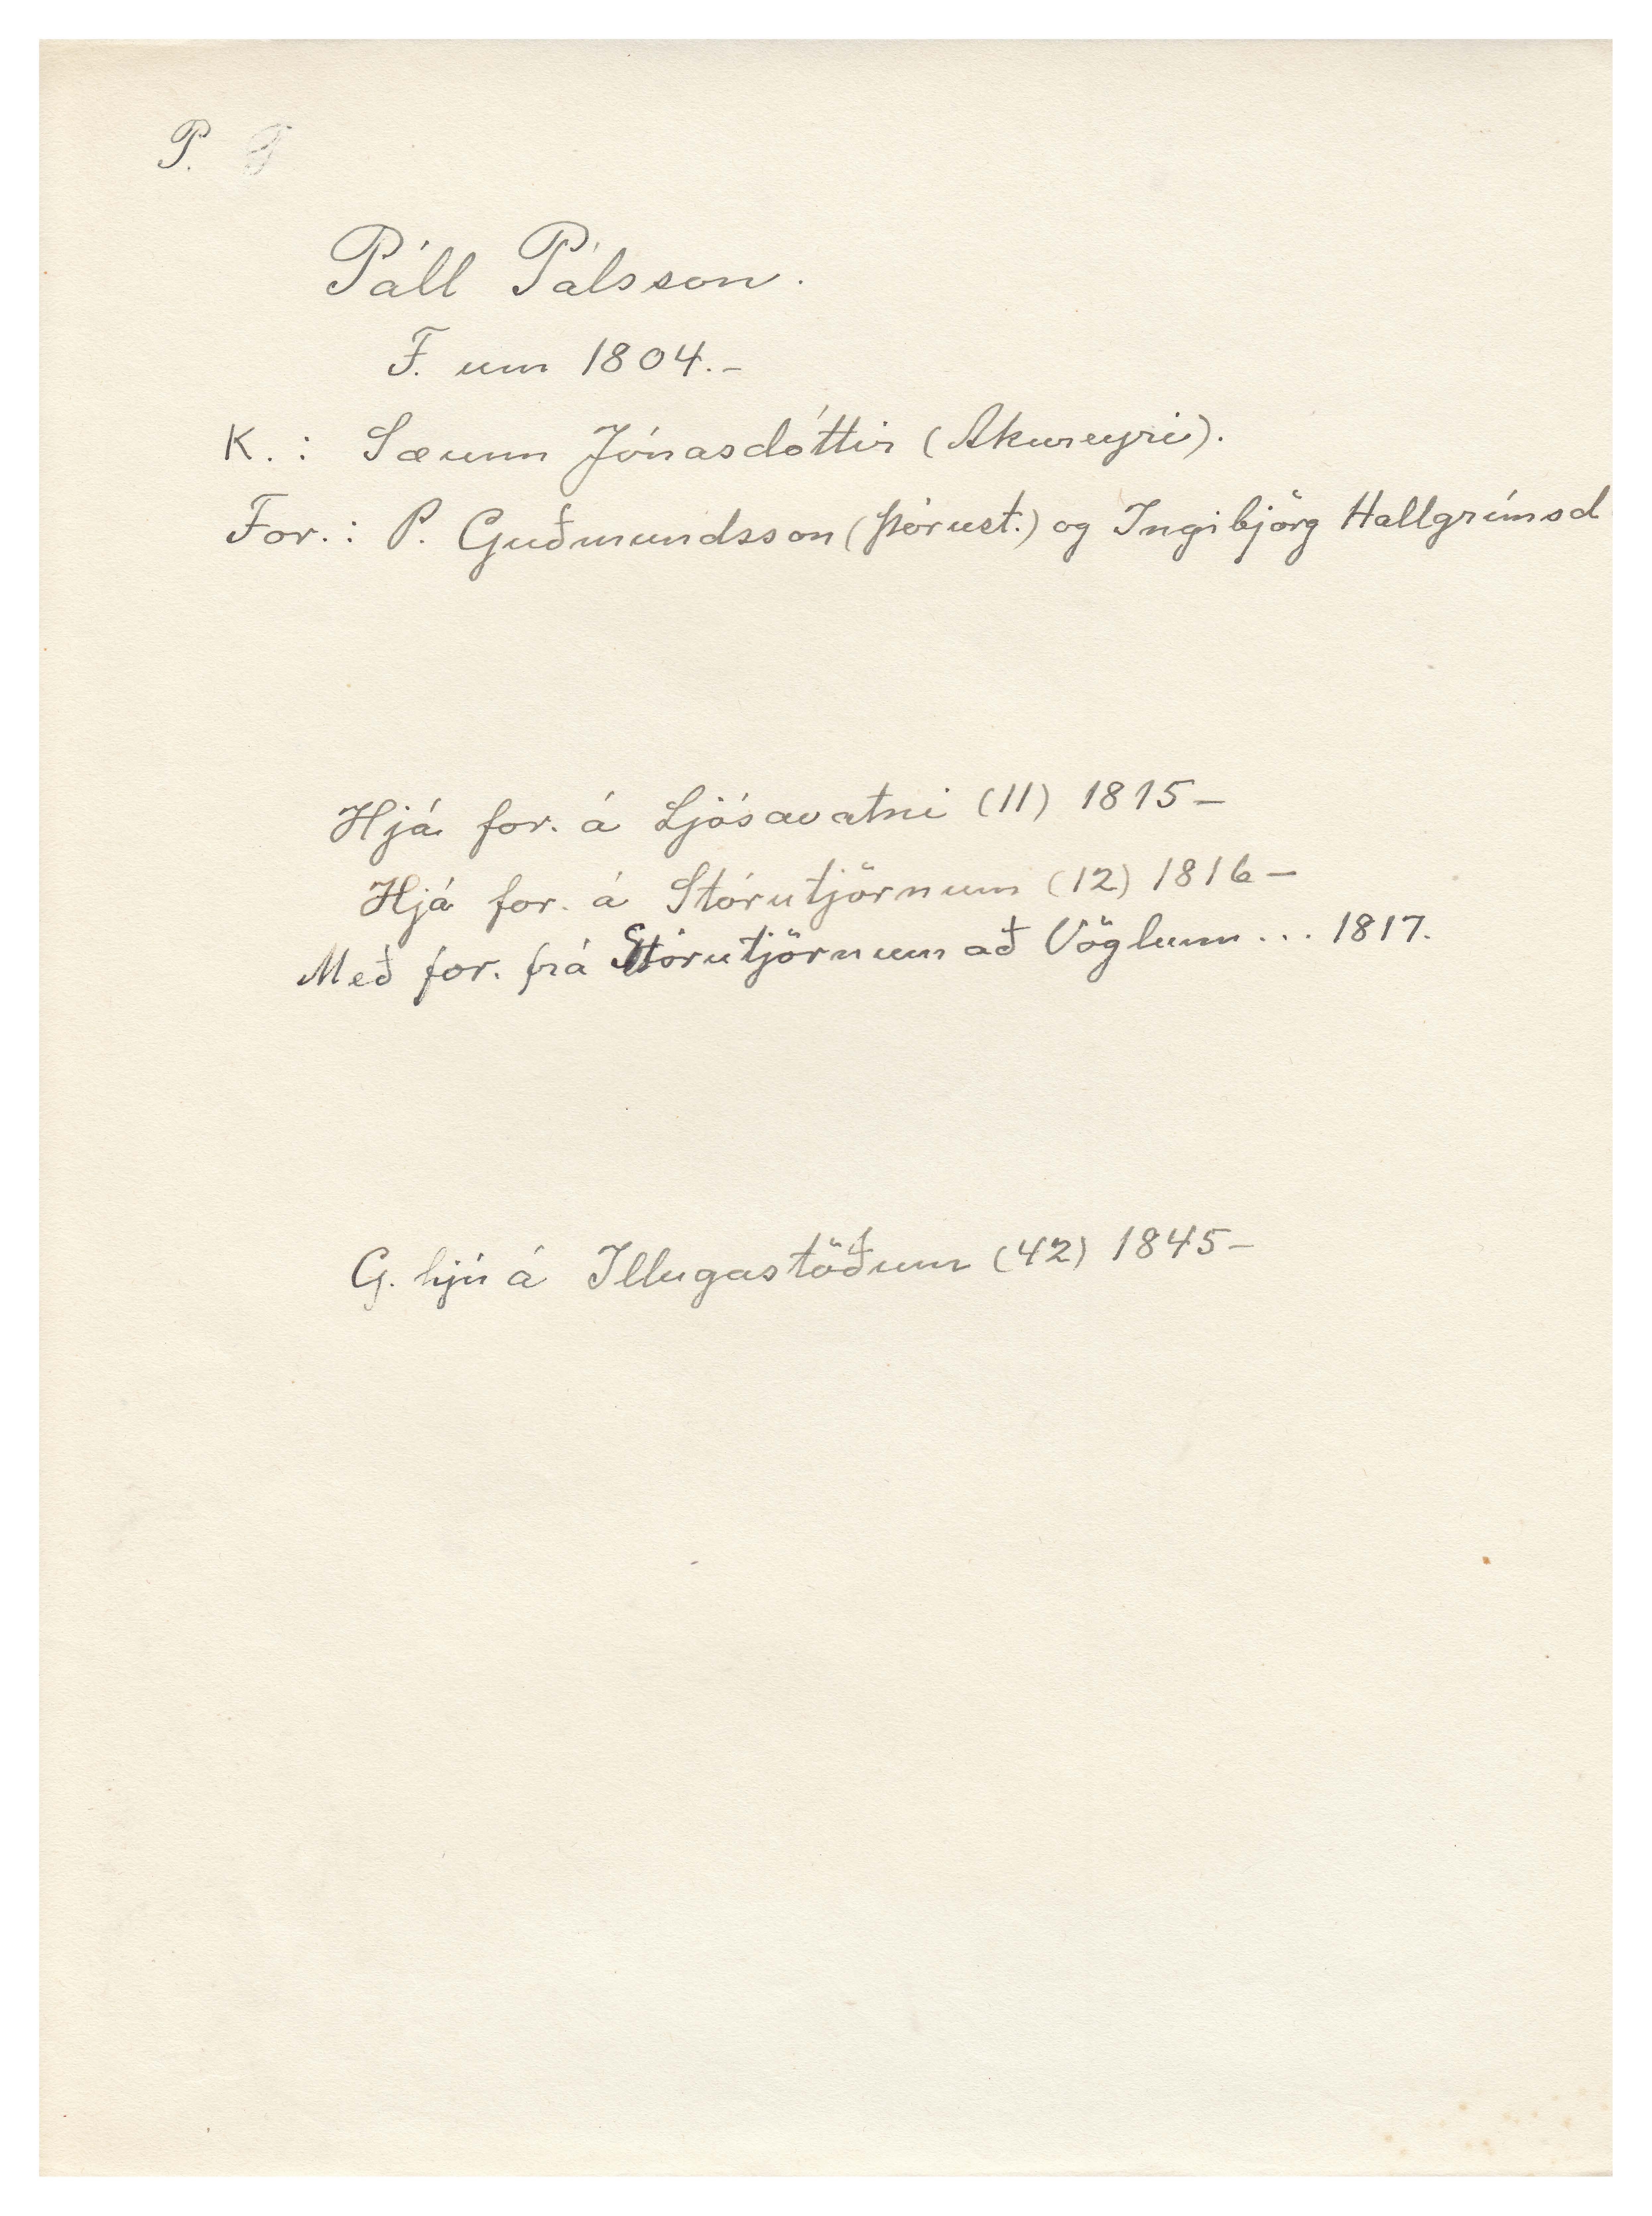 P. P
Páll Pálsson.
F. um 1804.-
K. : Sæunn Jónasdóttir (Akureyri).
For. : P. Guðmundsson (Þórust.) og Ingibjörg Hallgrímsd
Hjá for. á Ljósavatni (11) 1815-
Hjá for. á Stórutjörnum (12) 1816-
Með for. frá Stórutjörnum að Vöglum ... 1817.
G. hjú á Illugastöðum (42) 1845-